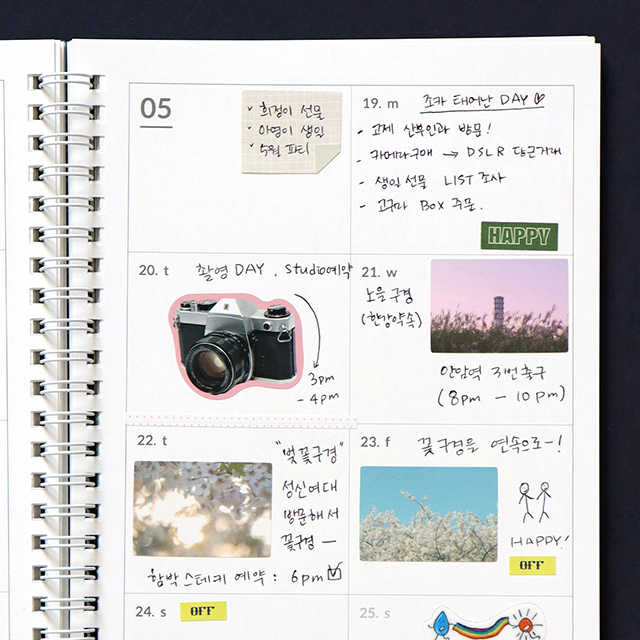 05
희정이 선물
아영이 생일
5월 파티
19. m 조카 태어난 DAY
- 고제 산부인과 방문!
- 카메라구매 → DSLR 당근거래
- 생일 선물 LIST 조사
- 고구마 Box 주문.
HAPPY
20. t 촬영 DAY. Studio예약
3pm
- 4pm
21. w
노을구경
(한강약속)
안암역 지번출구
(8pm - 10pm)
22. t
"벚꽃구경"
성신여대
방문해서
꽃구경 —
함박스테키 예약 : 6pm
23. f 꽃구경을 연속으로-!
HAPPY!
OFF
24. s OFF
25. s